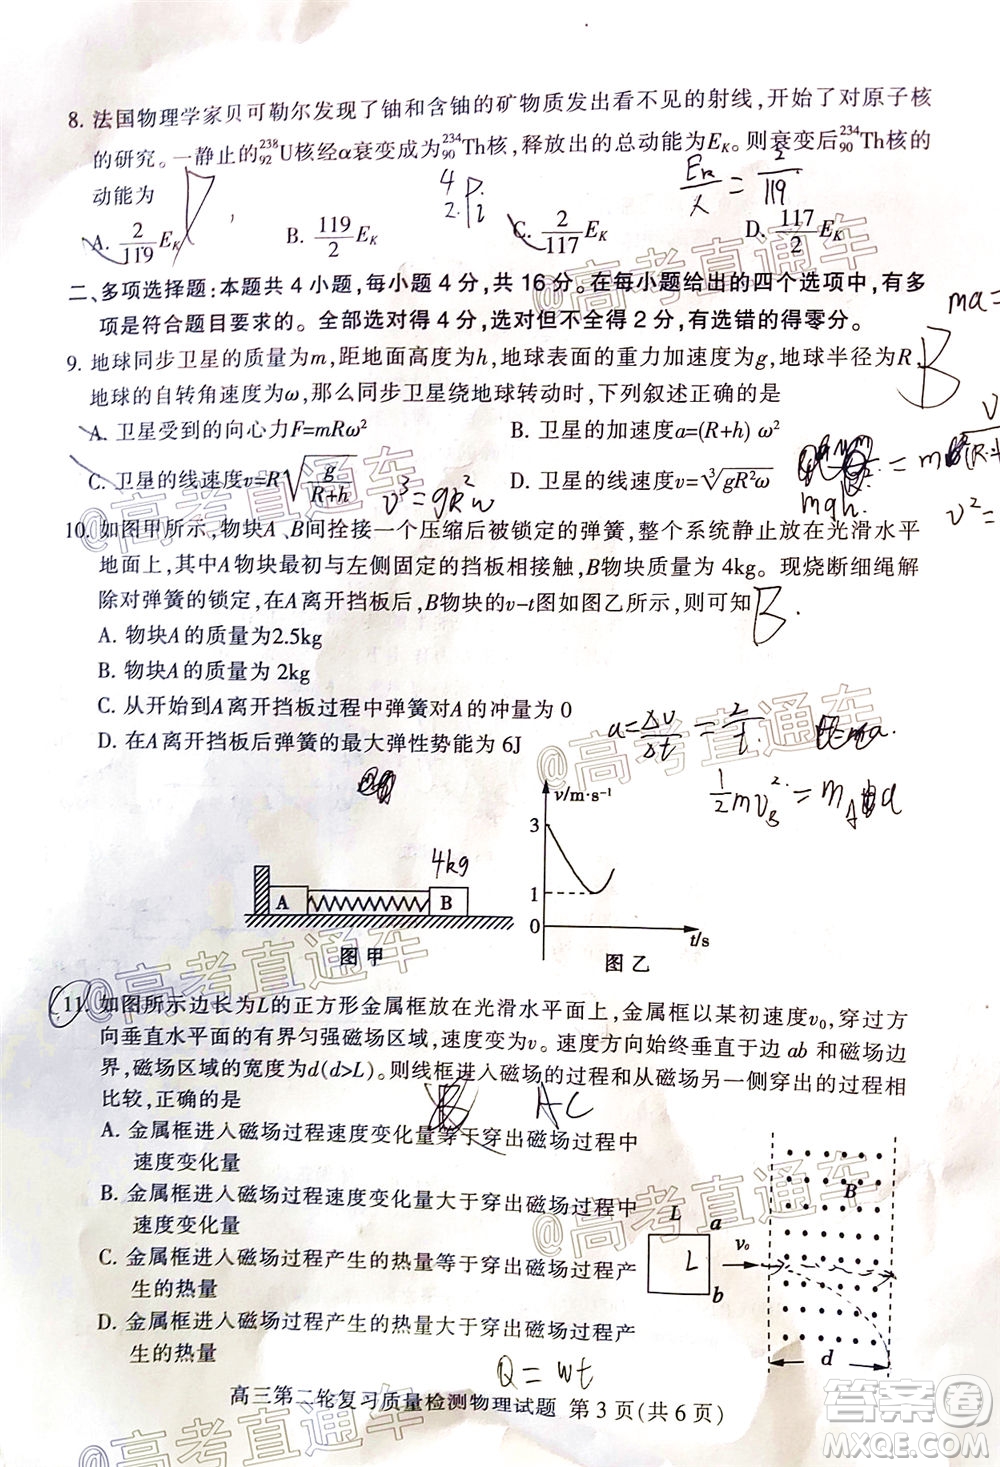 8. 法国物理学家贝可勒尔发现了铀和含铀的矿物质发出看不见的射线，开始了对原子核
的研究。一静止的²³⁸₉₂U核经α衰变成为²³⁴₉₀Th核，释放出的总动能为E_K。则衰变后²³⁴₉₀Th核的
动能为
4
2
E_k/ = 2/119
A. 2/119 E_K B. 119/2 E_K C. 2/117 E_K D. 117/2 E_K
二、多项选择题：本题共4小题，每小题4分，共16分。在每小题给出的四个选项中，有多
项是符合题目要求的。全部选对得4分，选对但不全得2分，有选错的得零分。
ma=
9. 地球同步卫星的质量为m，距地面高度为h，地球表面的重力加速度为g，地球半径为R，
B
地球的自转角速度为ω，那么同步卫星绕地球转动时，下列叙述正确的是
A. 卫星受到的向心力F=mRω² B. 卫星的加速度a=(R+h) ω²
C. 卫星的线速度v=R√(g/(R+h)) D. 卫星的线速度v=∛(gR²ω)
v³=gR²w
mgh
v²=
10. 如图甲所示，物块A、B间拴接一个压缩后被锁定的弹簧，整个系统静止放在光滑水平
地面上，其中A物块最初与左侧固定的挡板相接触，B物块质量为 4kg。现烧断细绳解
除对弹簧的锁定，在A离开挡板后，B物块的v-t图如图乙所示，则可知
B.
A. 物块A的质量为2.5kg
B. 物块A的质量为 2kg
C. 从开始到A离开挡板过程中弹簧对A的冲量为 0
D. 在A离开挡板后弹簧的最大弹性势能为 6J
a=Δv/Δt = 2/t
ma.
½mv_B² = m_A a
4kg
A B
图 甲
v/m·s⁻¹
3
1
0
t/s
图 乙
11. 如图所示边长为L的正方形金属框放在光滑水平面上，金属框以某初速度v₀，穿过方
向垂直水平面的有界匀强磁场区域，速度变为v。速度方向始终垂直于边 ab 和磁场边
界，磁场区域的宽度为d(d>L)。则线框进入磁场的过程和从磁场另一侧穿出的过程相
比较，正确的是
AC
A. 金属框进入磁场过程速度变化量等于穿出磁场过程中
速度变化量
B. 金属框进入磁场过程速度变化量大于穿出磁场过程中
速度变化量
C. 金属框进入磁场过程产生的热量等于穿出磁场过程产
生的热量
D. 金属框进入磁场过程产生的热量大于穿出磁场过程产
生的热量
L
L
a
b
v₀
B
d
Q = wt
高三第二轮复习质量检测物理试题 第 3 页(共 6 页)
@高考直通车
@高考直通车
@高考直通车
@高考直通车
@高考直通车
@高考直通车
答案圈
MXQE.COM